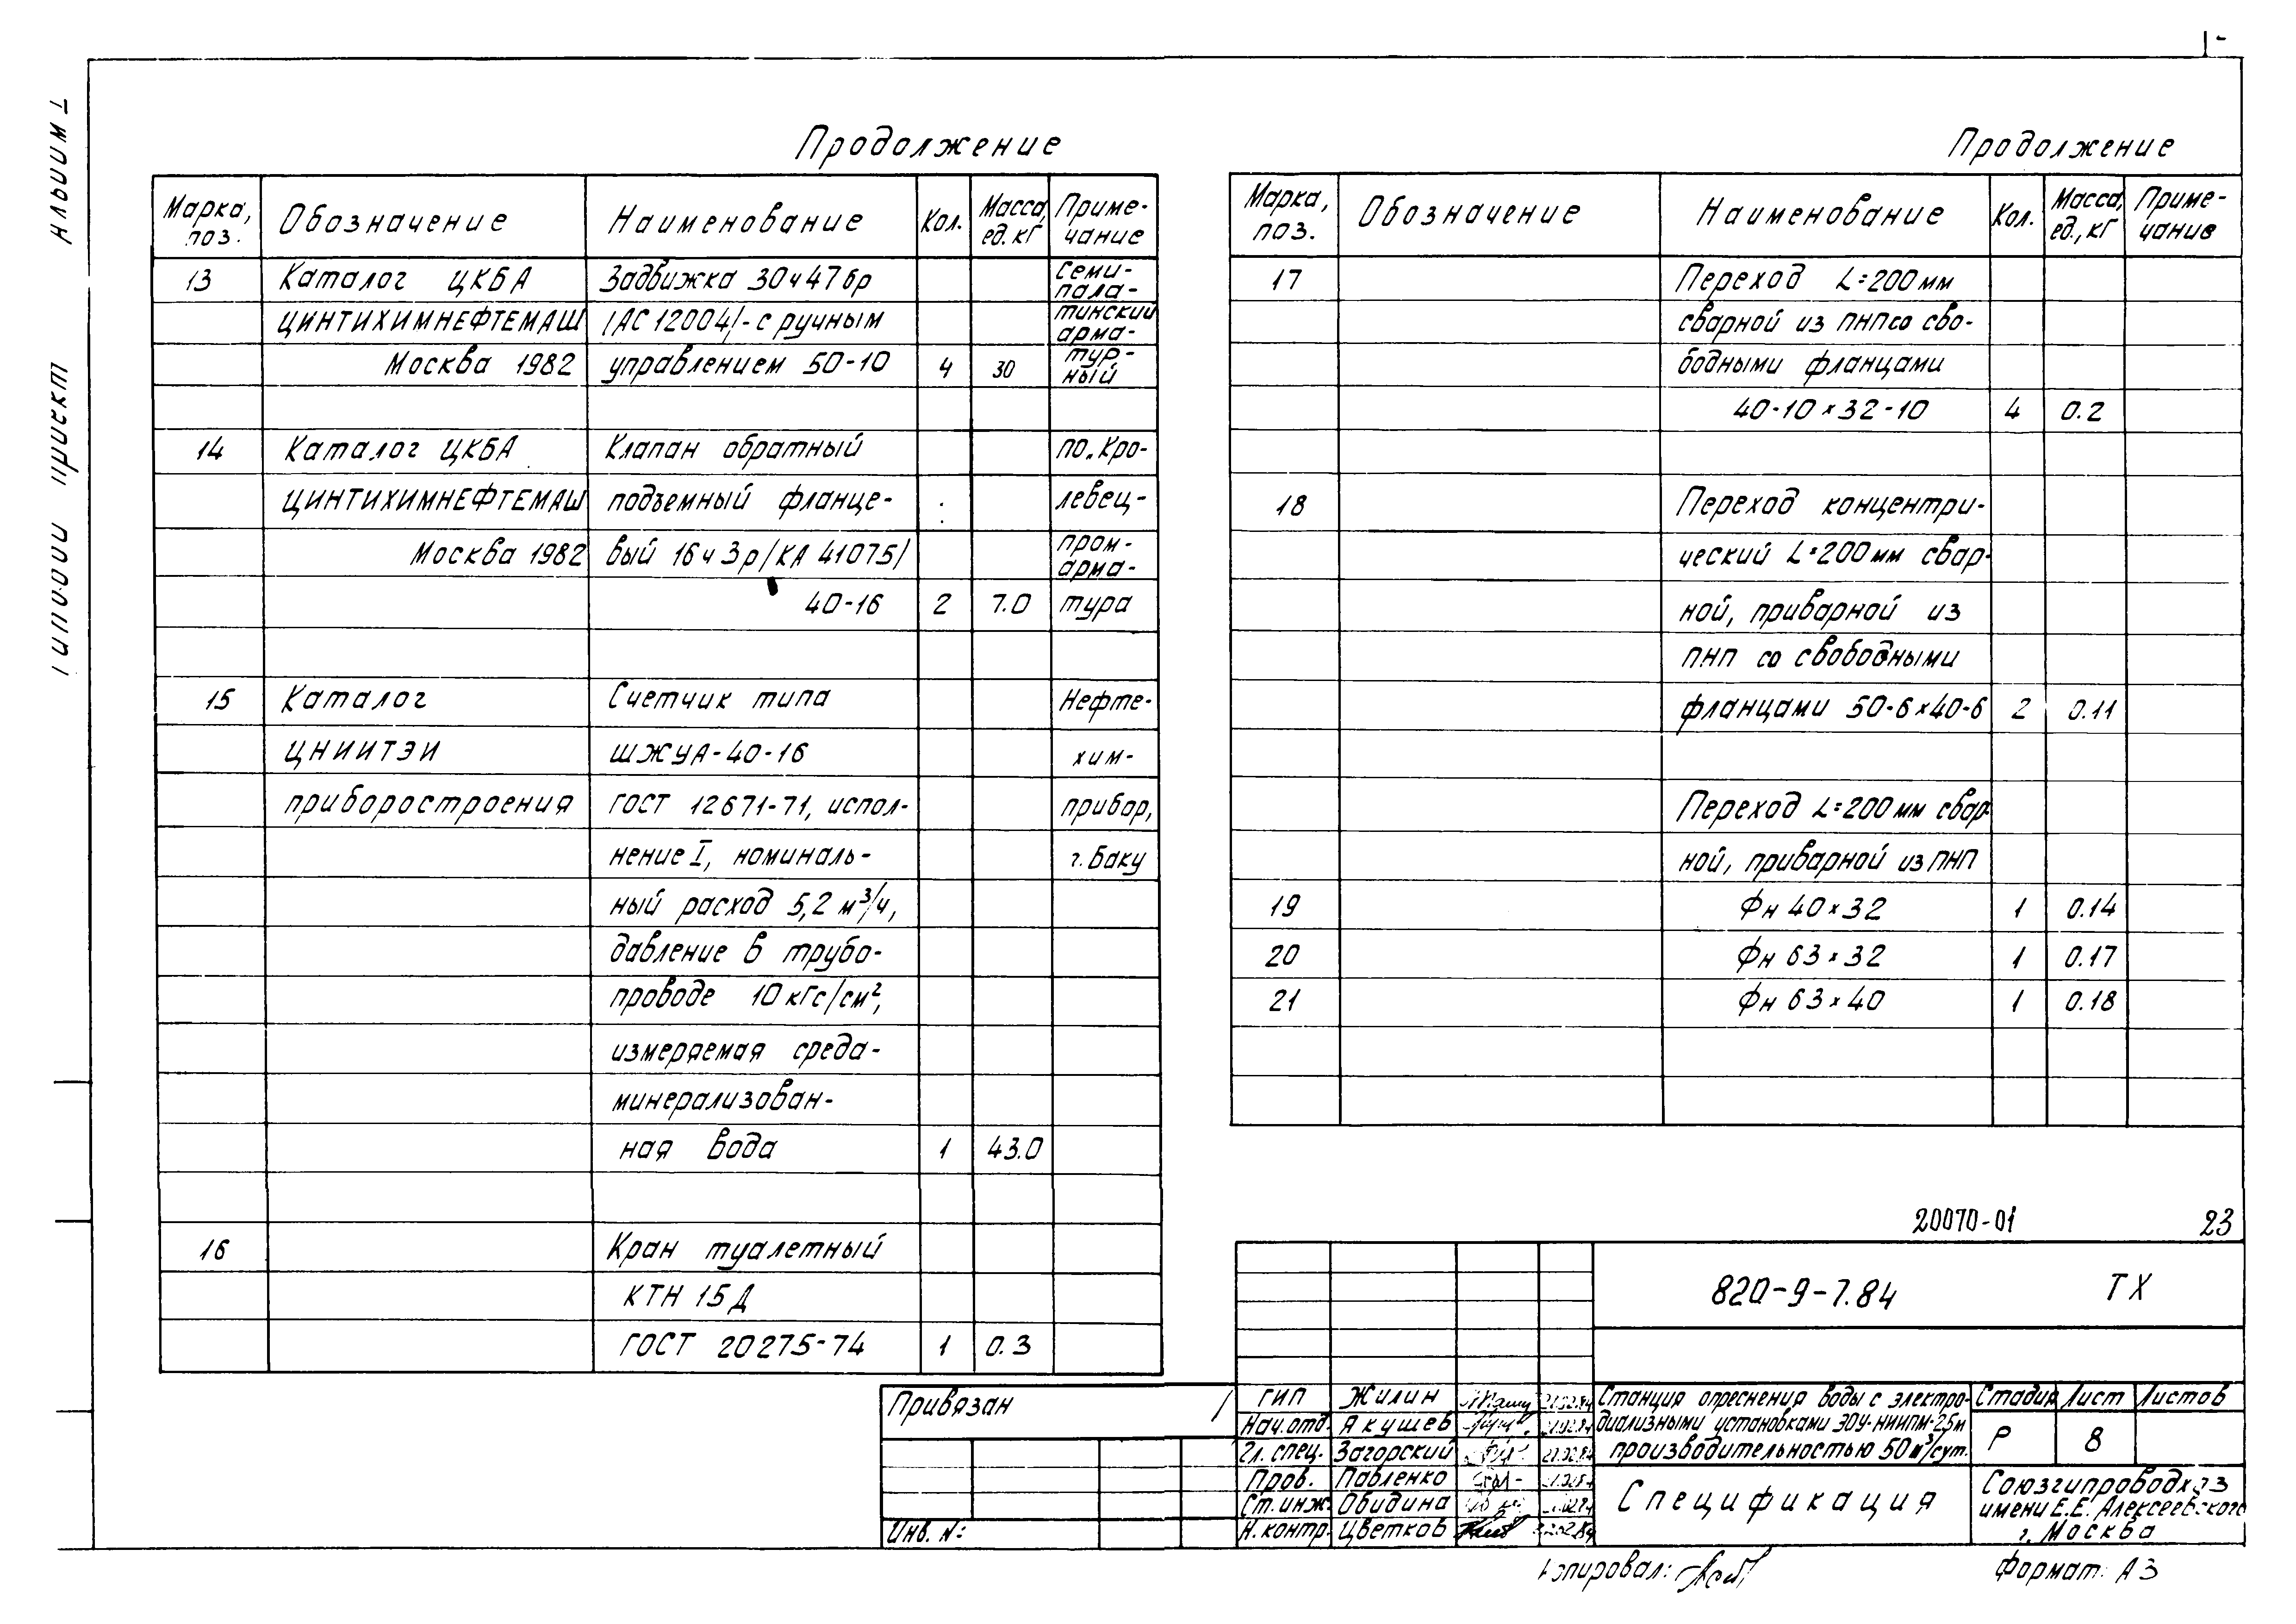 Альбом I
Типовой проект
Продолжение
Марка, поз. Обозначение Наименование Кол. Масса, ед. кг Примечание
13 Каталог ЦКБА Задвижка 30ч47бр Семи-
пала-
ЦИНТИХИМНЕФТЕМАШ /АС 12004/- с ручным тинский
арма-
Москва 1982 управлением 50-10 4 30 тур-
ный
14 Каталог ЦКБА Клапан обратный по„Кро-
ЦИНТИХИМНЕФТЕМАШ подъемный фланце- левец-
Москва 1982 вый 16ч3р/КА 41075/ пром-
арма-
40-16 2 7.0 тура
15 Каталог Счетчик типа Нефте-
ЦНИИТЭИ ШЖУА-40-16 хим-
приборостроения ГОСТ 12671-71, испол- прибор,
нение I, номиналь- г. Баку
ный расход 5,2 м³/ч,
давление в трубо-
проводе 10 кгс/см²,
измеряемая среда-
минерализован-
ная вода 1 43.0
16 Кран туалетный
КТН 15Д
ГОСТ 20275-74 1 0.3
Продолжение
Марка, поз. Обозначение Наименование Кол. Масса, ед., кг Примечание
17 Переход L=200 мм
сварной из ПНП со сво-
бодными фланцами
40-10×32-10 4 0.2
18 Переход концентри-
ческий L=200 мм свар-
ной, приварной из
ПНП со свободными
фланцами 50-6×40-6 2 0.11
Переход L=200 мм свар-
ной, приварной из ПНП
19 Фн 40×32 1 0.14
20 Фн 63×32 1 0.17
21 Фн 63×40 1 0.18
20070-01 23
820-9-7.84 ТХ
Привязан
Инв. №:
ГИП Жилин
Нач. отд. Якушев
Гл. спец. Загорский
Пров. Павленко
Ст. инж. Обидина
Н. контр. Цветков
Станция опреснения воды с электро-
диализными установками ЭОУ-НИИПМ-25м
производительностью 50 м³/сут.
Стадия Лист Листов
Р 8
Спецификация
Союзгипроводхоз
имени Е.Е. Алексеевского
г. Москва
Копировал:
Формат: А3